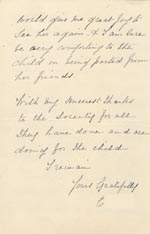 would give me great joy to
see her again. & I am sure
be very comforting to the
child on being parted from
her friends.
With my sincerest thanks
to the Society for all
they have done and are
doing for the child
I remain
Yours Gratefully